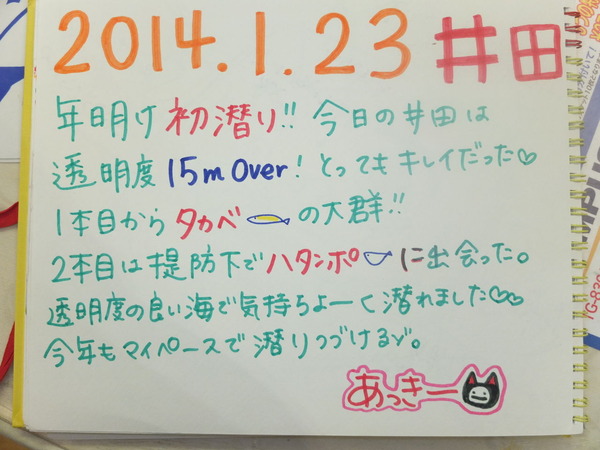 2014.1.23 井田
年明け初潜り!! 今日の井田は
透明度15m Over! とってもキレイだった♡
1本目からタカベの大群!!
2本目は提防下でハタンポに出会った。
透明度の良い海で気持ちよーく潜れました♡♡
今年もマイペースで潜りつづけるゾ。
あっきー